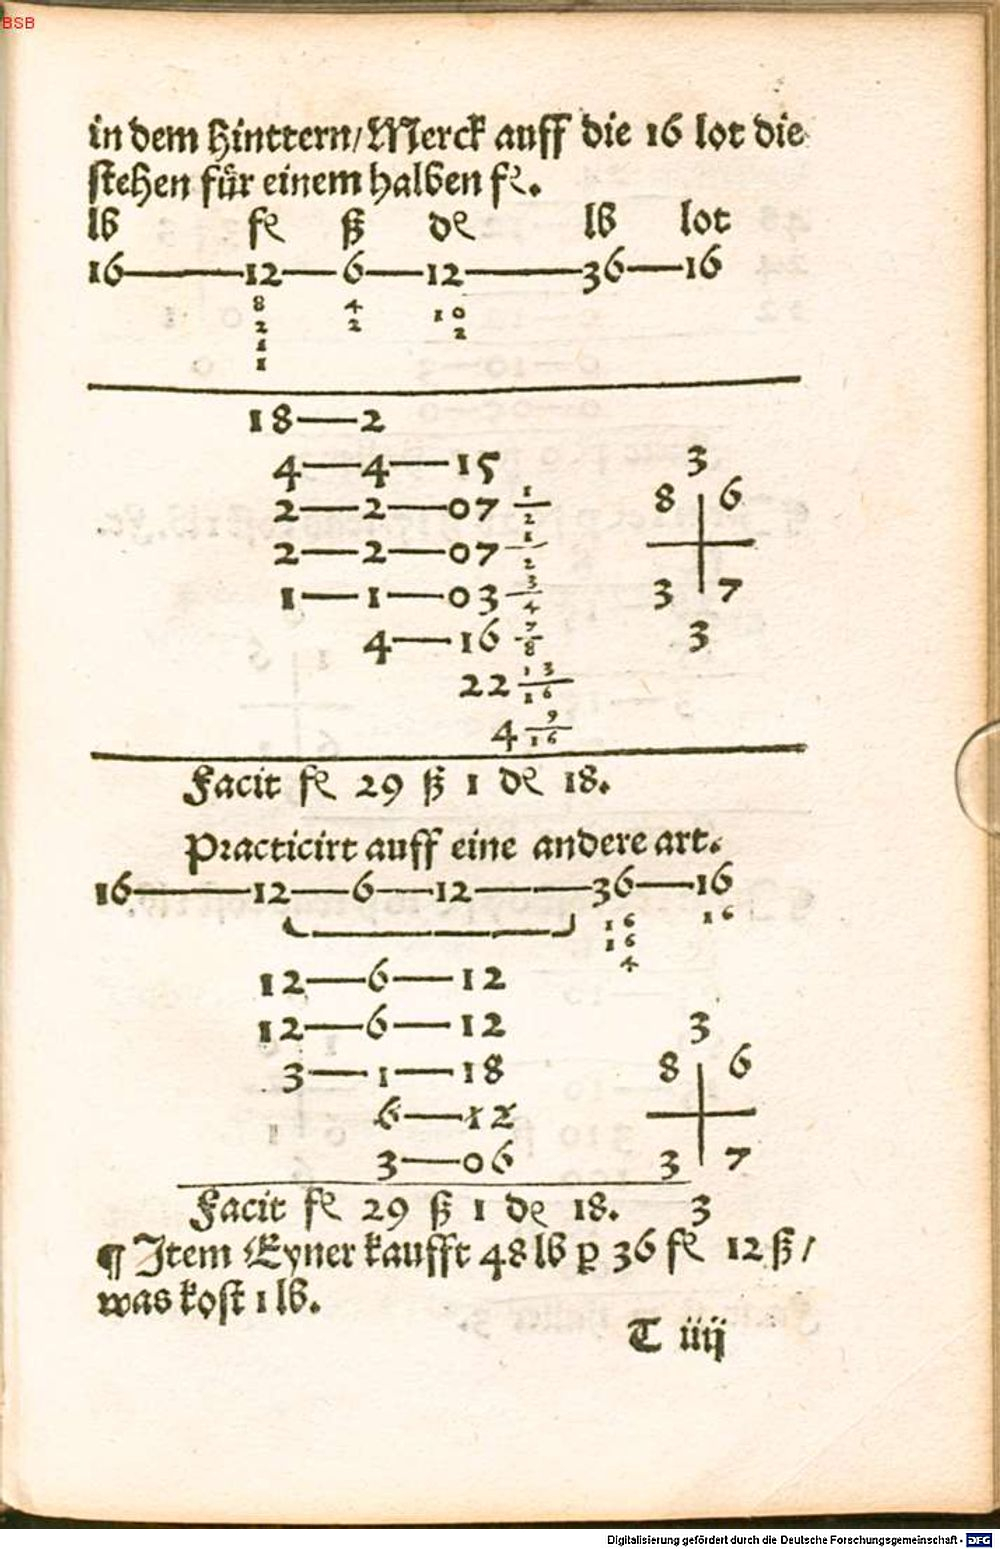 BSB
in dem hinttern/Merck auff die 16 lot die
stehen für einem halben fl.
lb fl ß de lb lot
16—12—6—12—36—16
8 4 10
2 2 2
1
1
18—2
4—4—15
2—2—07 1/2
2—2—07 1/2
1—1—03 3/4
4—16 7/8
22 13/16
4 9/16
3
8 6
3 7
3
Facit fl 29 ß 1 de 18.
Practicirt auff eine andere art.
16—12—6—12—36—16
16 16
16
4
12—6—12
12—6—12
3—1—18
6—12
3—06
3
8 6
3 7
3
Facit fl 29 ß 1 de 18.
¶ Item Eyner kaufft 48 lb p 36 fl 12 ß/
was kost 1 lb.
T iiij
Digitalisierung gefördert durch die Deutsche Forschungsgemeinschaft - DFG